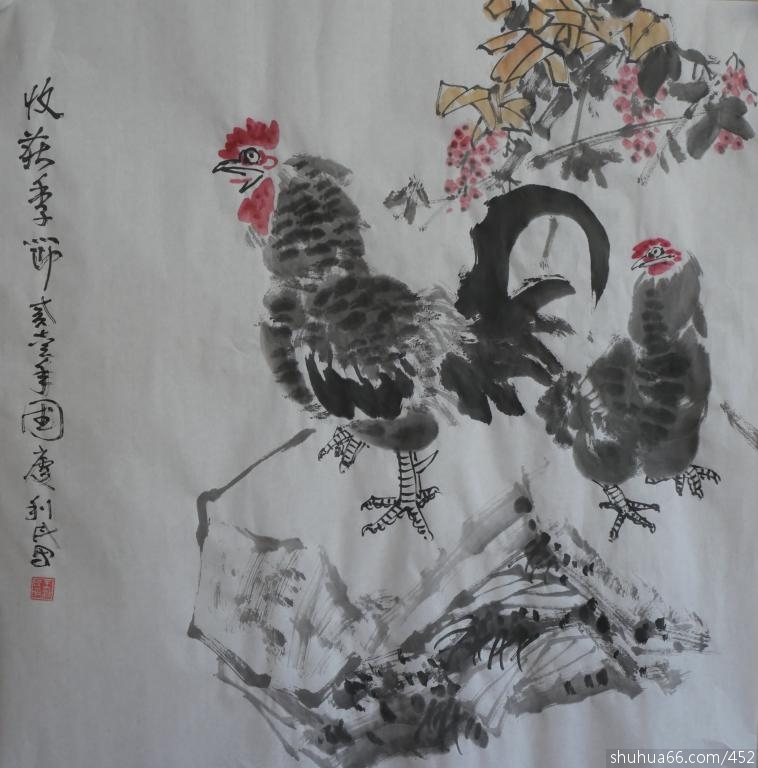 收获季节贰壹年国庆利民画
shuhua66.com/452